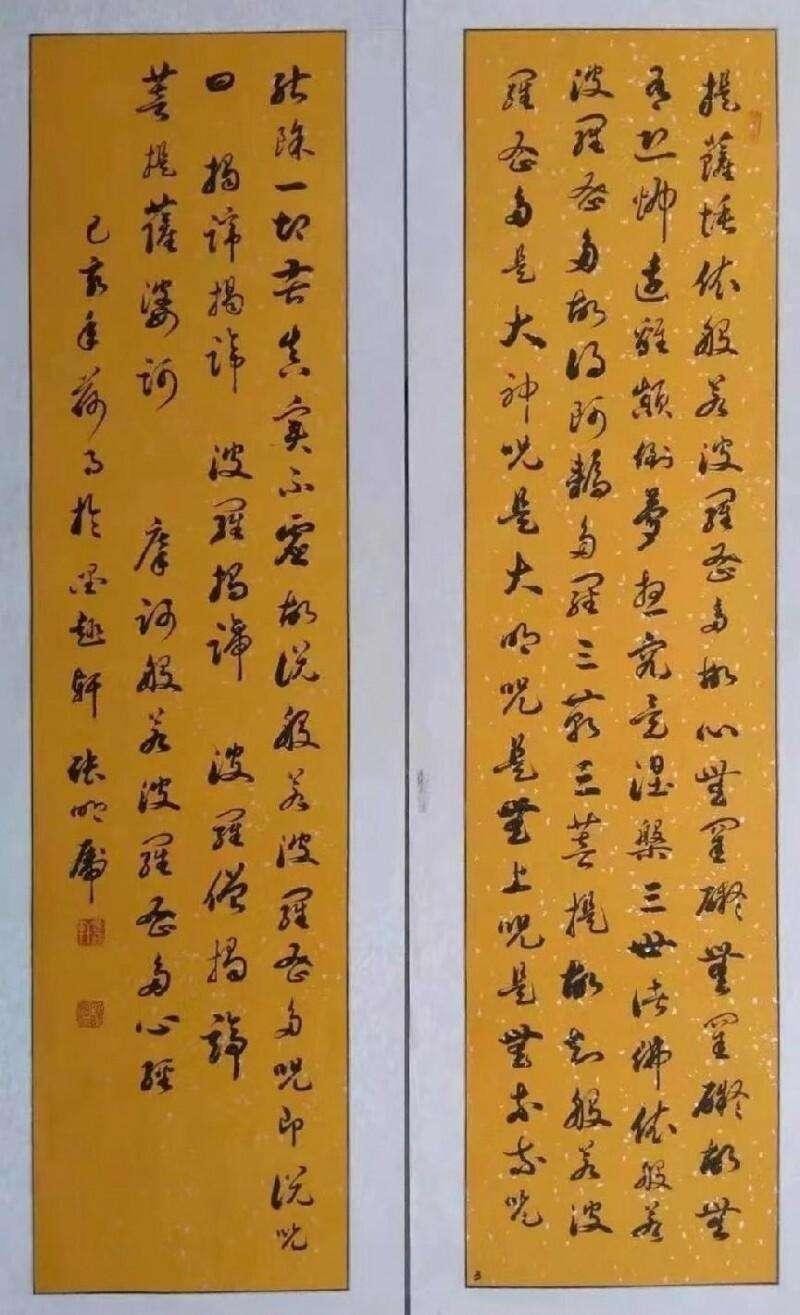 提薩埵依般若波羅蜜多故心無罣礙無罣礙故無
有恐怖遠離顛倒夢想究竟涅槃三世諸佛依般若
波羅蜜多故得阿耨多羅三藐三菩提故知般若波
羅蜜多是大神呪是大明呪是無上呪是無等等呪
能除一切苦真實不虛故說般若波羅蜜多呪即說呪
曰 揭諦揭諦 波羅揭諦 波羅僧揭諦
菩提薩婆訶 摩訶般若波羅蜜多心經
己亥年荷月於墨趣軒 張明